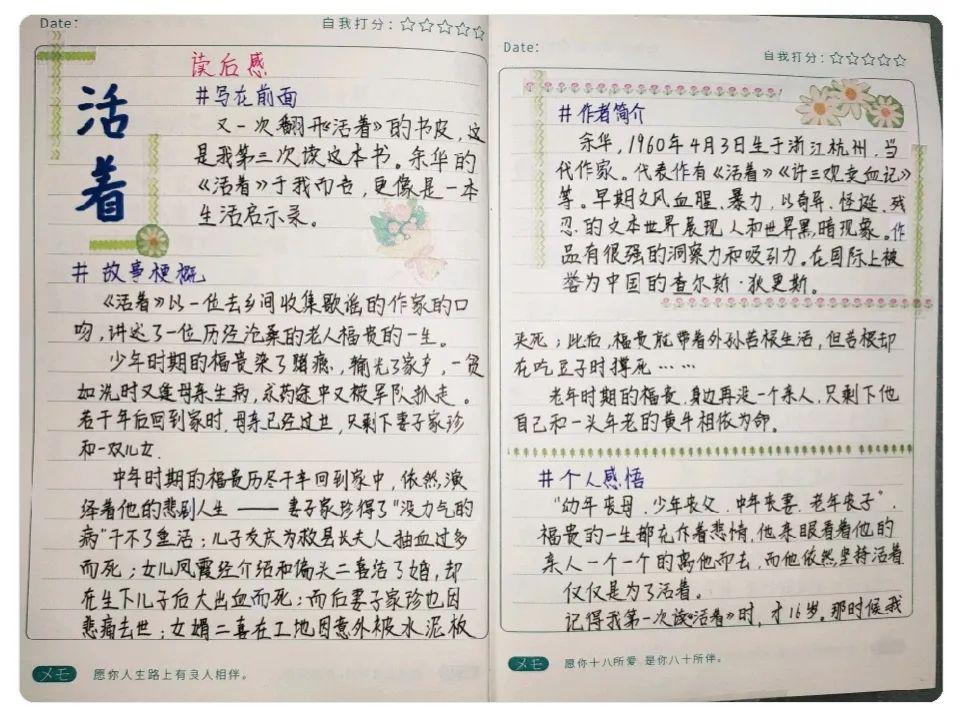 Date:
自我打分:☆☆☆☆☆
读后感
活着
#写在前面
又一次翻开《活着》的书皮,这
是我第三次读这本书。余华的
《活着》于我而言,更像是一本
生活启示录。
# 故事梗概
《活着》以一位去乡间收集歌谣的作家的口
吻,讲述了一位历经沧桑的老人福贵的一生。
少年时期的福贵染了赌瘾,输光了家产,一贫
如洗时又逢母亲生病,求药途中又被军队抓走。
若干年后回到家时,母亲已经过世,只剩下妻子家珍
和一双儿女.
中年时期的福贵历尽千辛回到家中,依然演
绎着他的悲剧人生 —— 妻子家珍得了"没力气的
病"干不了重活;儿子友庆为救县长夫人抽血过多
而死;女儿凤霞经介绍和偏头二喜结了婚,却
在生下儿子后大出血而死;而后妻子家珍也因
悲痛去世;女婿二喜在工地因意外被水泥板
メモ 愿你人生路上有良人相伴。
Date:
自我打分:☆☆☆☆☆
#作者简介
余华,1960年4月3日生于浙江杭州,当
代作家。代表作有《活着》《许三观卖血记》
等。早期文风血腥、暴力,以奇异、怪诞、残
忍的文本世界展现人和世界黑暗现象。作
品有很强的洞察力和吸引力。在国际上被
誉为中国的查尔斯·狄更斯。
夹死;此后,福贵就带着外孙苦根生活,但苦根却
在吃豆子时撑死……
老年时期的福贵,身边再没一个亲人,只剩下他
自己和一头年老的黄牛相依为命。
#个人感悟
"幼年丧母、少年丧父、中年丧妻、老年丧子",
福贵的一生都充斥着悲情,他亲眼看着他的
亲人一个一个的离他而去,而他依然坚持活着
仅仅是为了活着。
记得我第一次读《活着》时,才16岁。那时候我
メモ 愿你十八所爱 是你八十所伴。